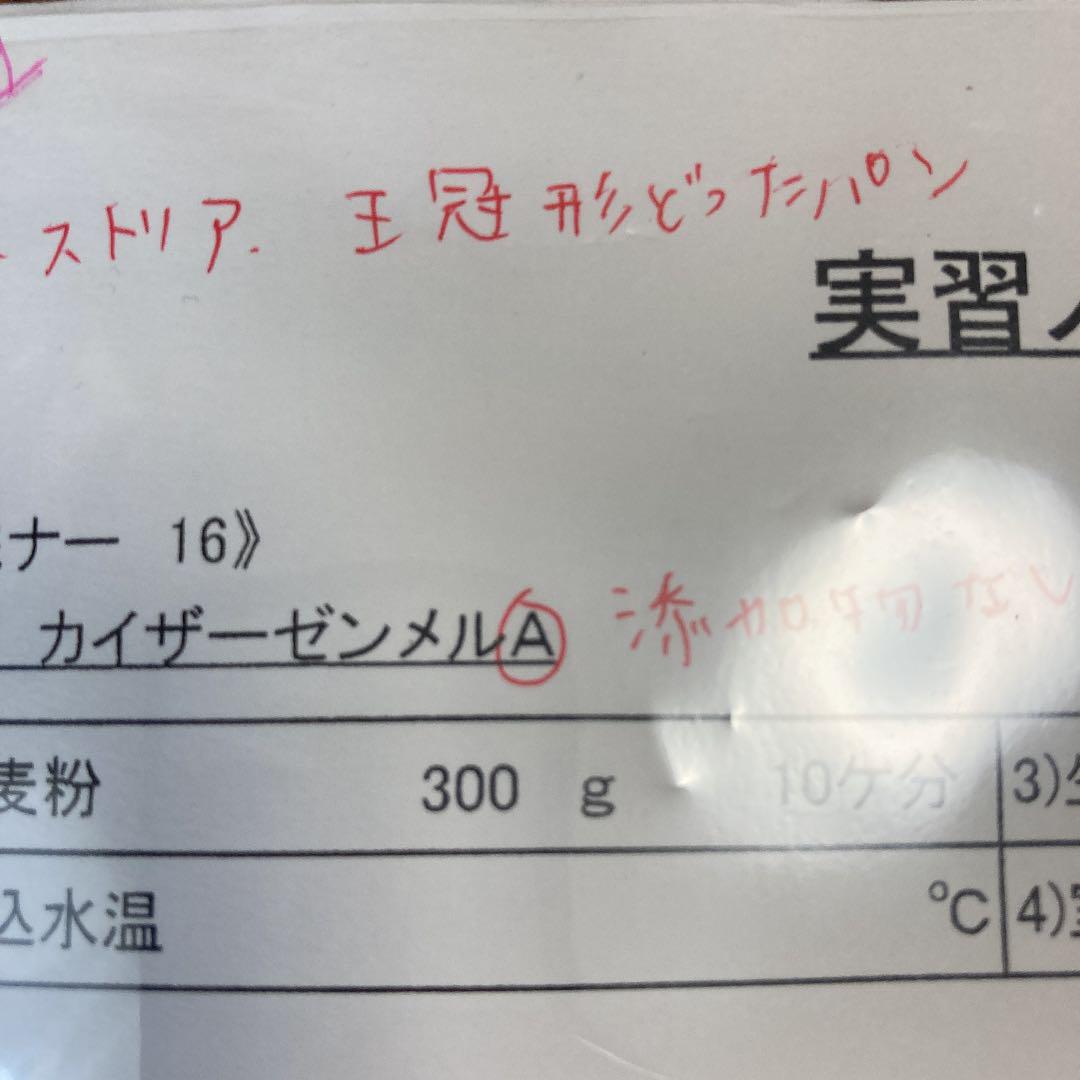 ストリア. 王冠形どったパン
実習
ミナー 16》
カイザーゼンメルA 添加物なし
麦粉 300 g 10ケ分 3)
込水温 ℃ 4)